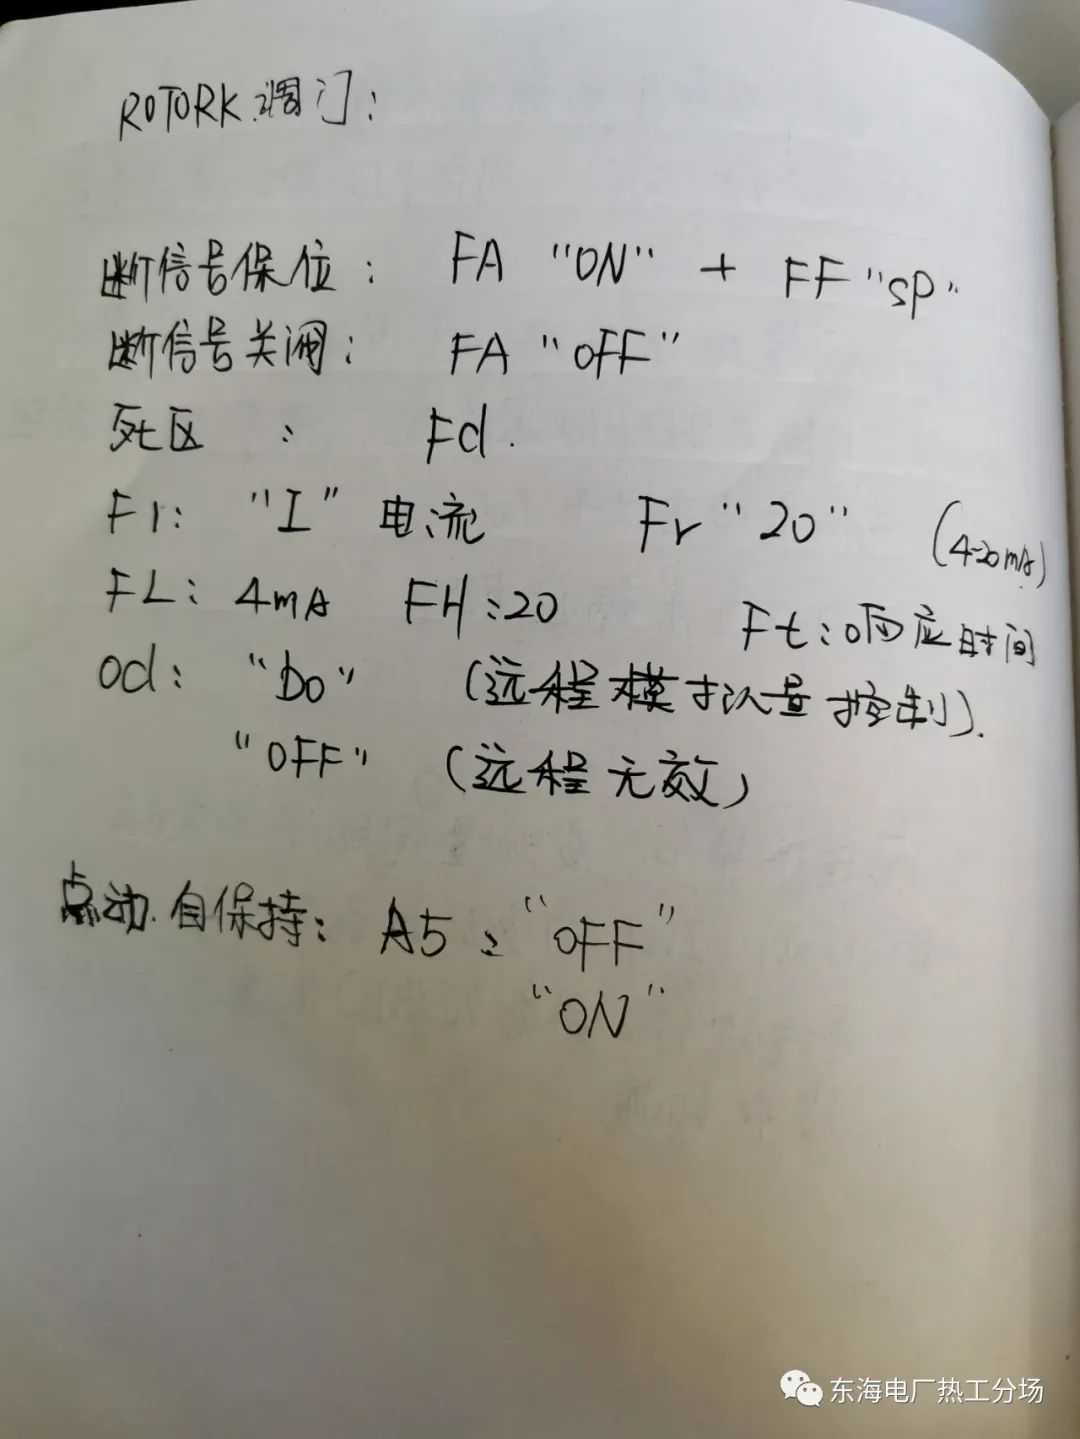 ROTORK调门:
断信号保位: FA "ON" + FF "SP"
断信号关阀: FA "OFF"
死区: Fd.
F1: "I" 电流 Fr "20" (4-20mA)
FL: 4mA FH:20 Ft:响应时间
od: "Do" (远程模拟量控制).
"OFF" (远程无效)
点动.自保持: A5: "OFF"
"ON"
东海电厂热工分场